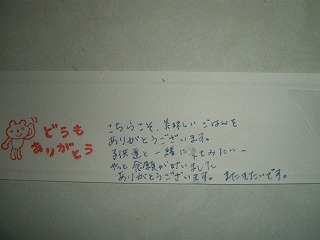 どうも
ありがとう
こちらこそ、美味しいごはんを
ありがとうございます。
子供達と一緒に来てみたいー
やっと念願が叶いました
ありがとうございます。 またきたいです。